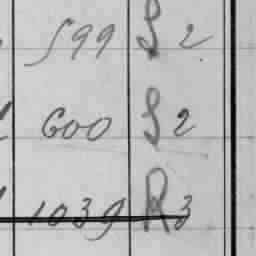 599 S 2
600 S 2
1039 R 3